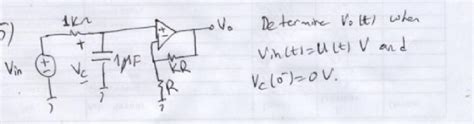 5)
1kΩ
Vin
+
Vc
1μF
Vo
KR
R
Determine Vo(t) when
Vin(t)=u(t) V and
Vc(0⁻)=0V.